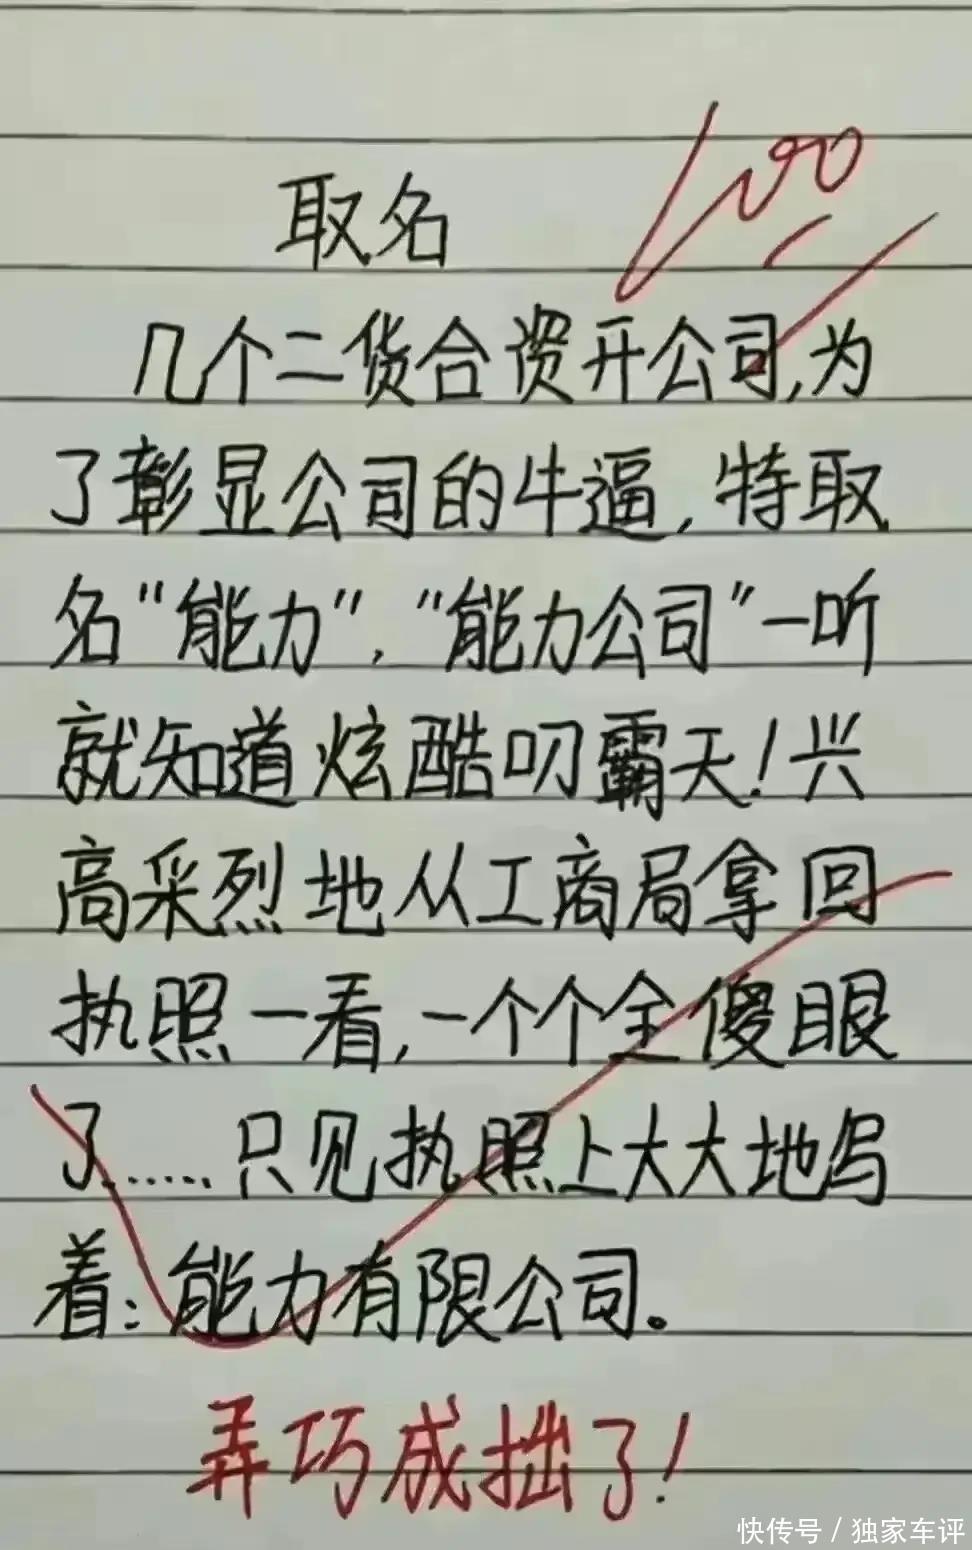 取名
100
几个二货合资开公司,为
了彰显公司的牛逼,特取
名“能力”,“能力公司”一听
就知道炫酷叨霸天!兴
高采烈地从工商局拿回
执照一看,一个个全傻眼
了......只见执照上大大地写
着:能力有限公司。
弄巧成拙了!
快传号/独家车评